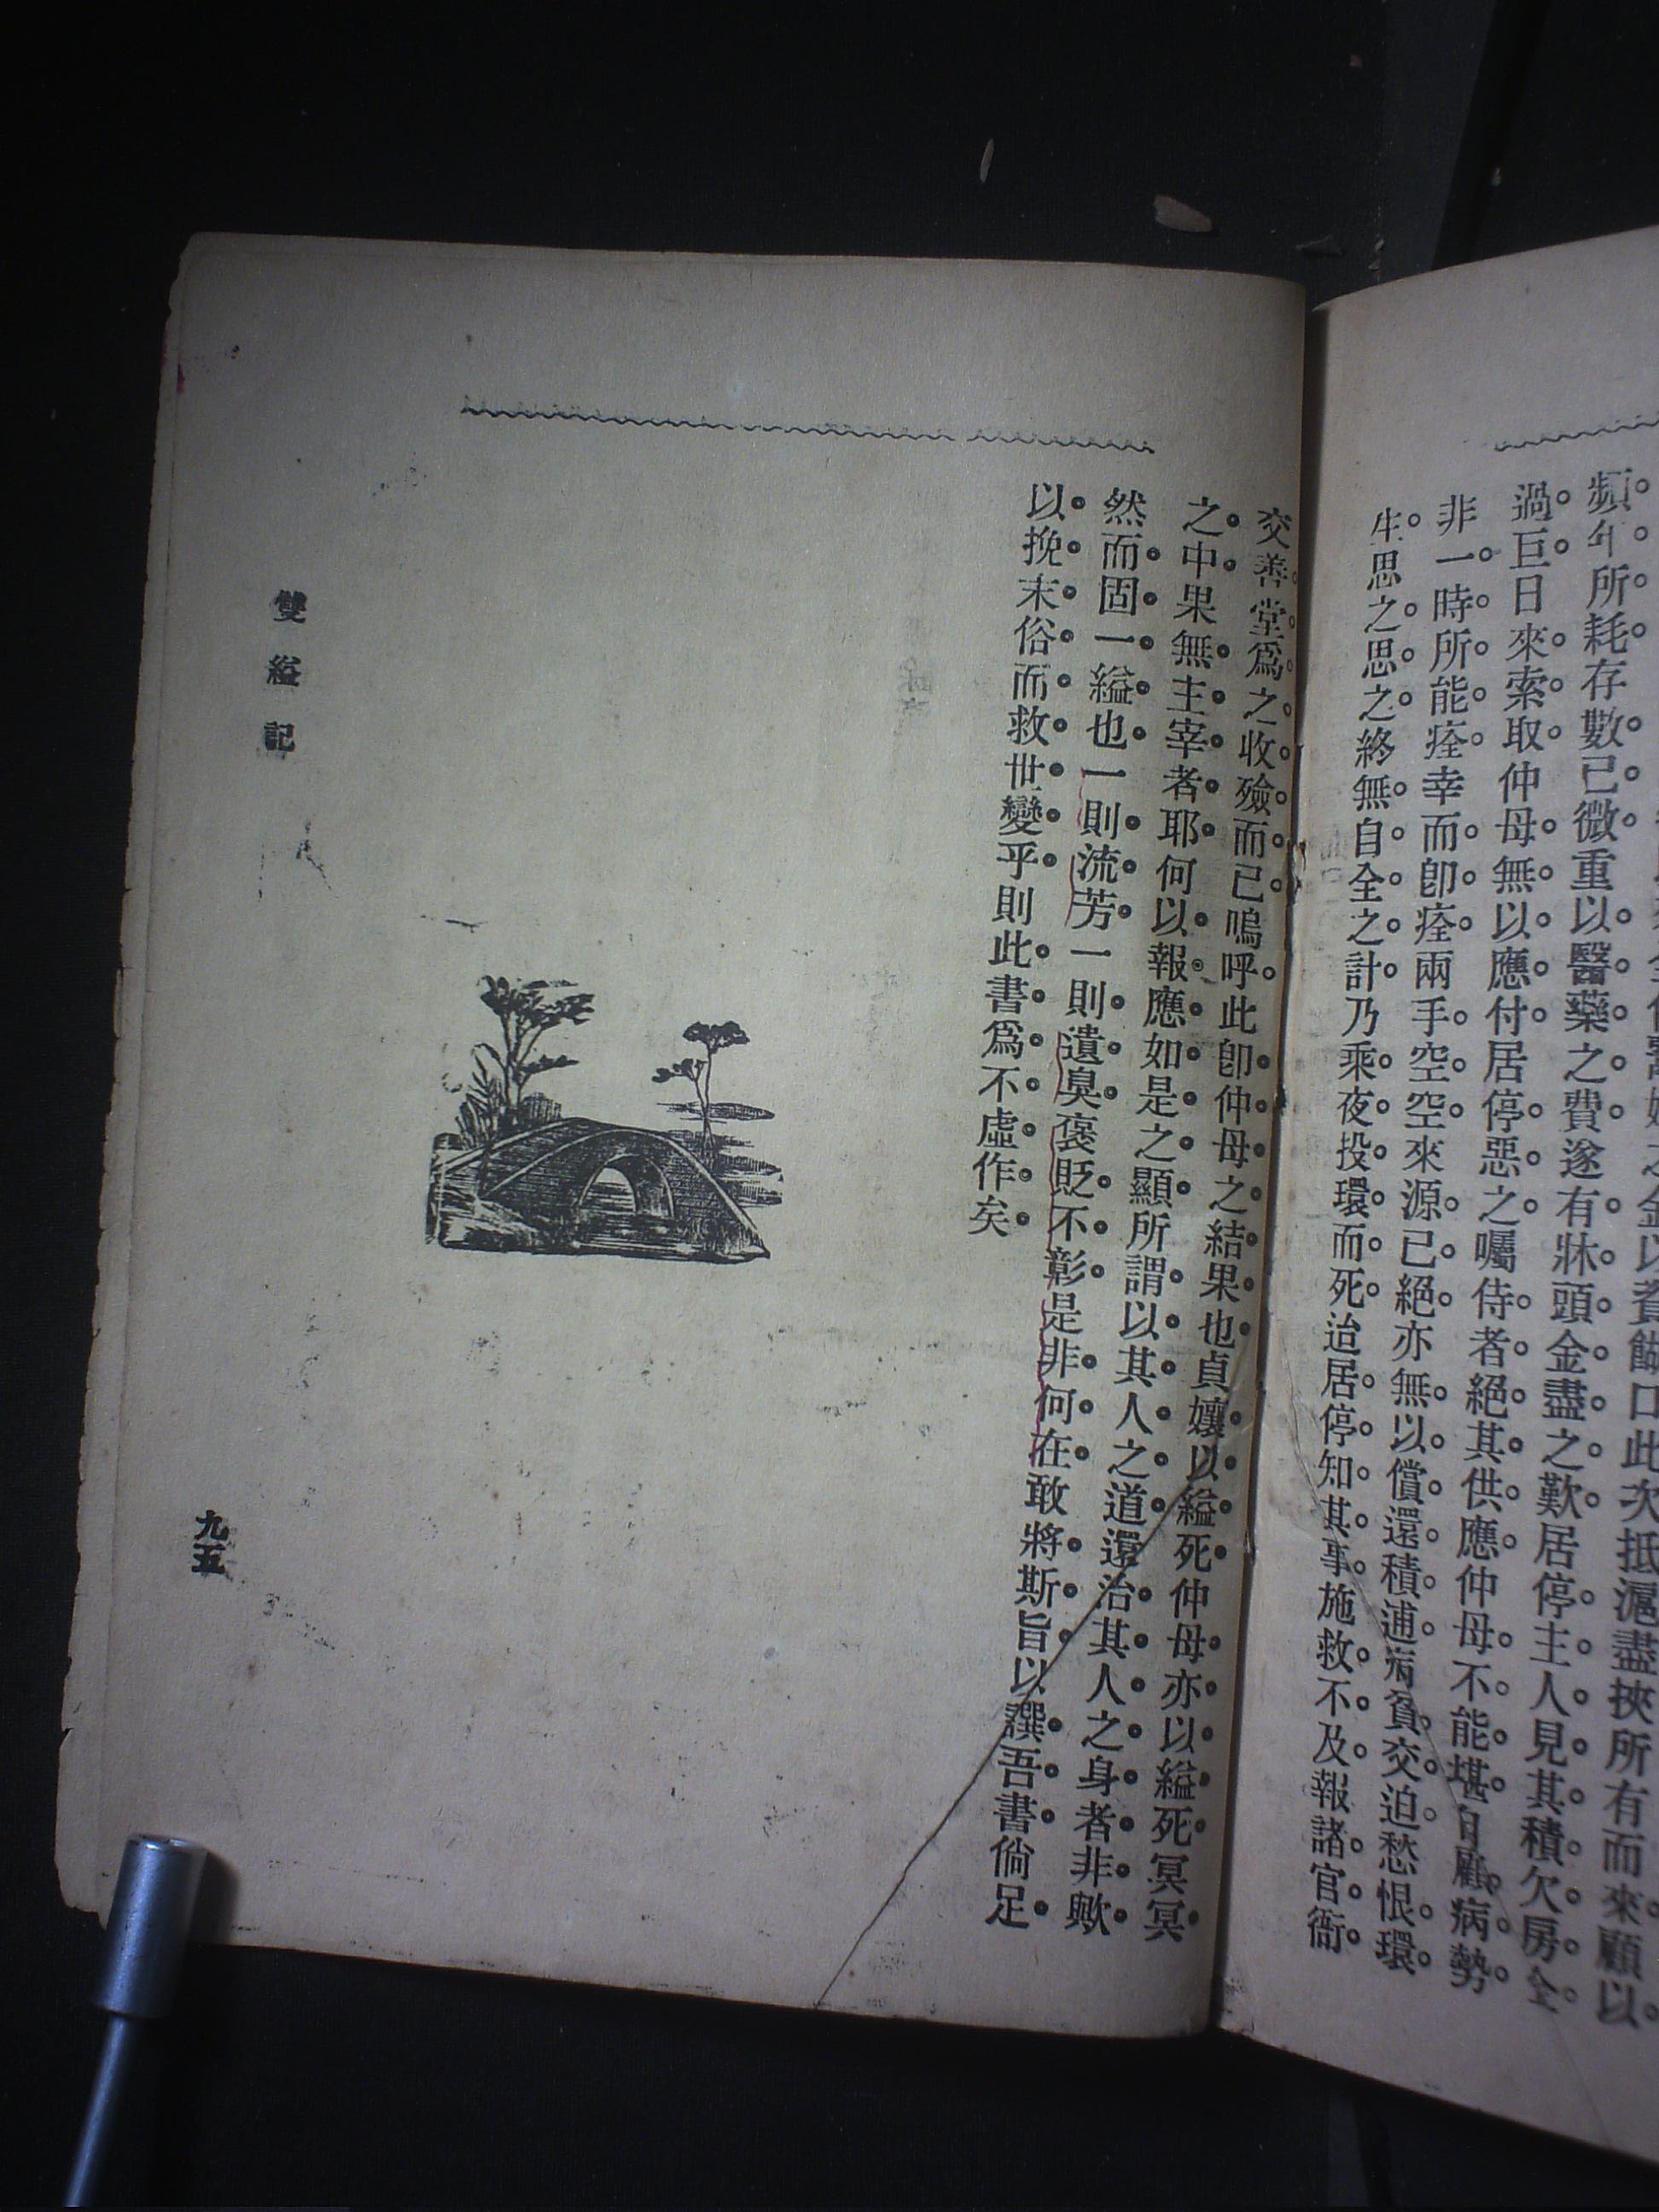 頻年所耗存數已微重以醫藥之費遂有牀頭金盡之歎居停主人見其積欠房金
過巨日來索取仲母無以應付居停惡之囑侍者絕其供應仲母不能堪自顧病勢
非一時所能痊幸而卽痊兩手空空來源已絕亦無以償還積逋病貧交迫愁恨環
生思之思之終無自全之計乃乘夜投環而死迨居停知其事施救不及報諸官衙
交善堂爲之收殮而已嗚呼此卽仲母之結果也貞孃以縊死仲母亦以縊死冥冥
之中果無主宰者耶何以報應如是之顯所謂以其人之道還治其人之身者非歟
然而固一縊也一則流芳一則遺臭褒貶不彰是非何在敢將斯旨以譔吾書倘足
以挽末俗而救世變乎則此書爲不虛作矣
雙縊記
九五